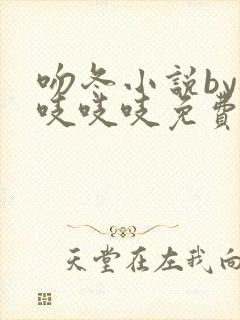 吻冬小说by
吱吱吱免費
天堂在左我向